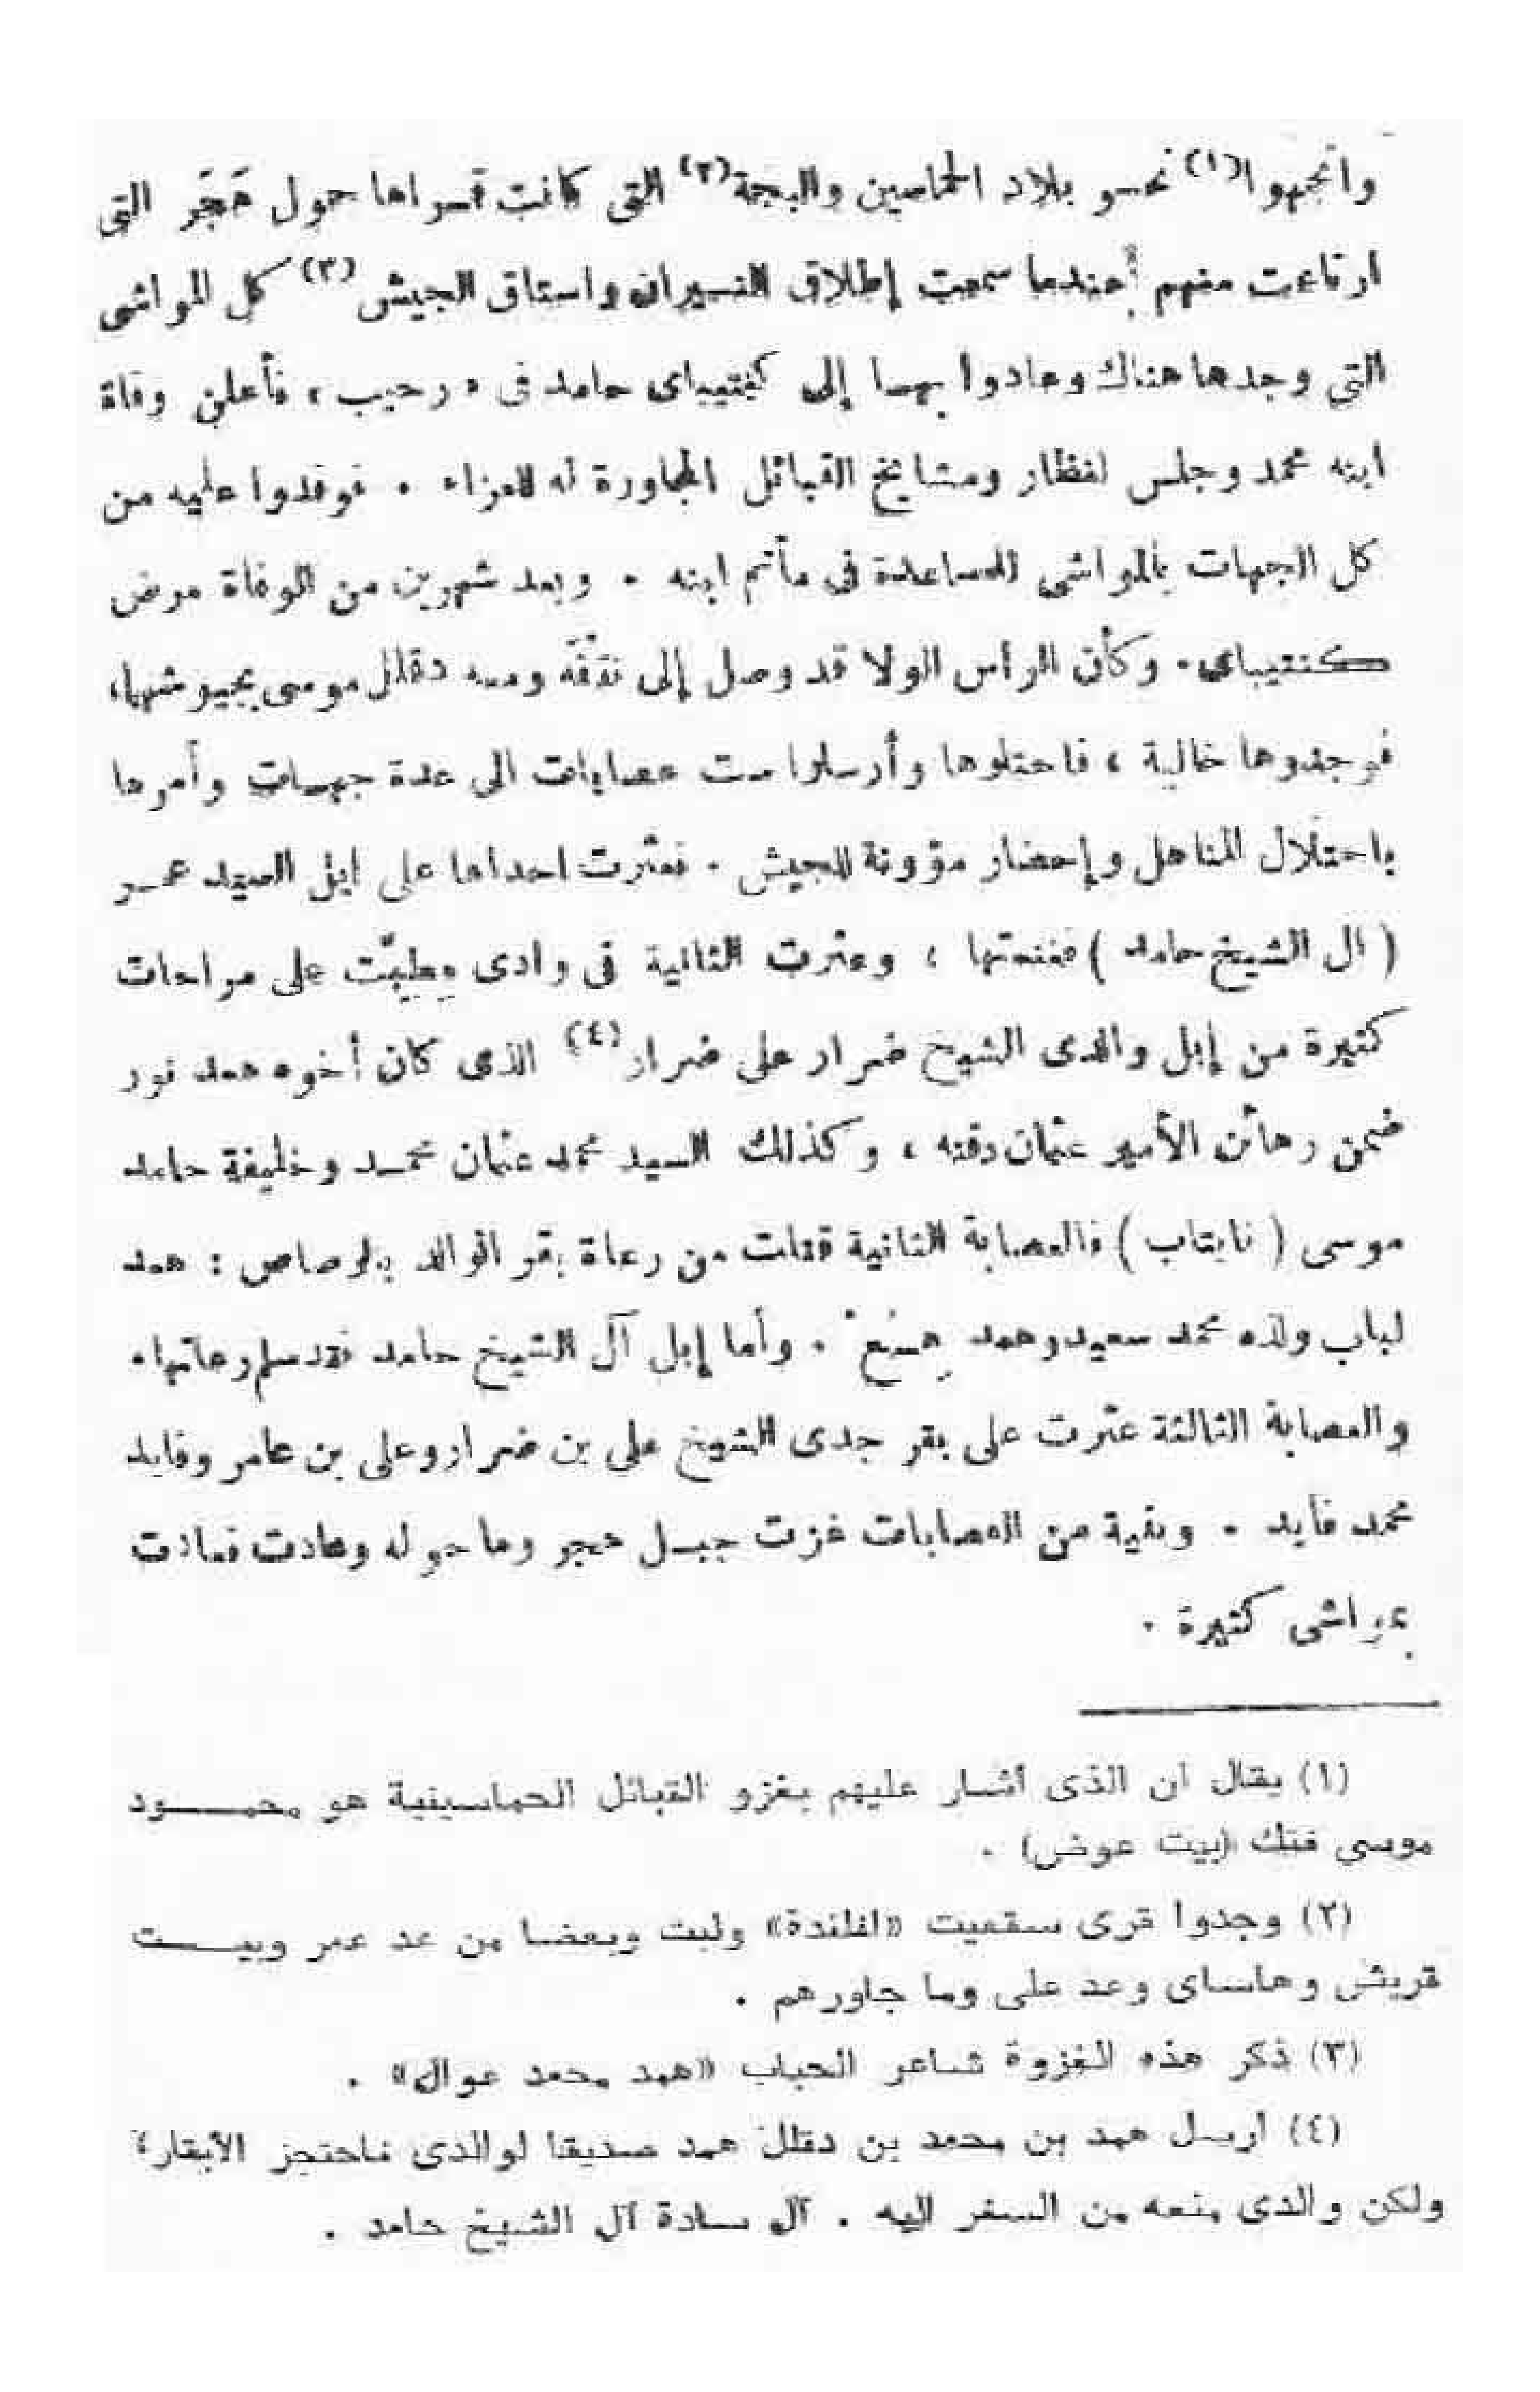 واتجهوا(١) نحو بلاد الحماسين والبجة(٢) التى كانت قراها حول هَجَر التى
ارتاعت منهم عندما سمعت إطلاق النيران واستاق الجيش(٣) كل المواشى
التى وجدها هناك وعادوا بها إلى كنتيباى حامد فى « رحيب » فأعلن وفاة
ابنه محمد وجلس لنظار ومشايخ القبائل المجاورة له للعزاء . فوفدوا عليه من
كل الجهات بالمواشى للمساعدة فى مأتم ابنه . وبعد شهرين من الوفاة مرض
كنتيباى . وكأن الراس الولا قد وصل إلى نَقْفَة ومعه دقلل موسى بجيوشهما،
فوجدوها خالية ، فاحتلوها وأرسلوا ست عصابات الى عدة جهات وأمرها
باحتلال المناهل وإحضار مؤونة للجيش . فعثرت احداها على ابل السيد عمر
( ال الشيخ حامد ) فغنمتها ؛ وعثرت الثانية فى وادى على مراحات
كثيرة من إبل والدى الشيخ ضرار على ضرار(٤) الذى كان أخوه همد نور
ضمن رهائن الأمير عثمان دقنه ، وكذلك السيد محمد عثمان محمد وخليفة حامد
موسى ( نابتاب ) فالعصابة الثانية قتلت من رعاة بقر الوالد بالرصاص : همد
لباب ولده محمد سعيد وهمد . وأما إبل آل الشيخ حامد فقد سلم رعاتها .
والعصابة الثالثة عثرت على بقر جدى الشيخ على بن ضرار وعلى بن عامر وفايد
محمد فايد . وبقية من العصابات غزت جبل هجر وما حوله وعادت فعادت
بمواشى كثيرة .
(١) يقال ان الذى أشار عليهم بغزو القبائل الحماسينية هو محمود
موسى فتك (بيت عوض) .
(٢) وجدوا قرى سقميت «افلندة» ولبت وبعضا من عد عمر وبيت
قريش وهاساى وعد على وما جاورهم .
(٣) ذكر هذه الغزوة شاعر الحباب «همد محمد عوال» .
(٤) ارسل همد بن محمد بن دقلل همد صديقا لوالدى فاحتجز الأبقار؛
ولكن والدى منعه من السفر اليه . آل سادة آل الشيخ حامد .